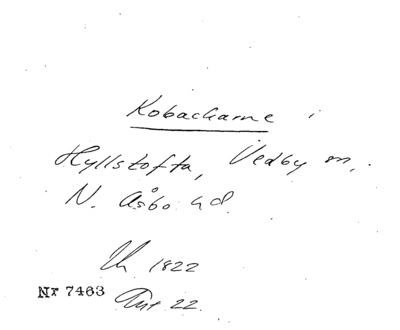 Kobackarne i
Hyllstofta, Vedby m,.
N. Åsbo hd.
1822
Nr 7463
22.